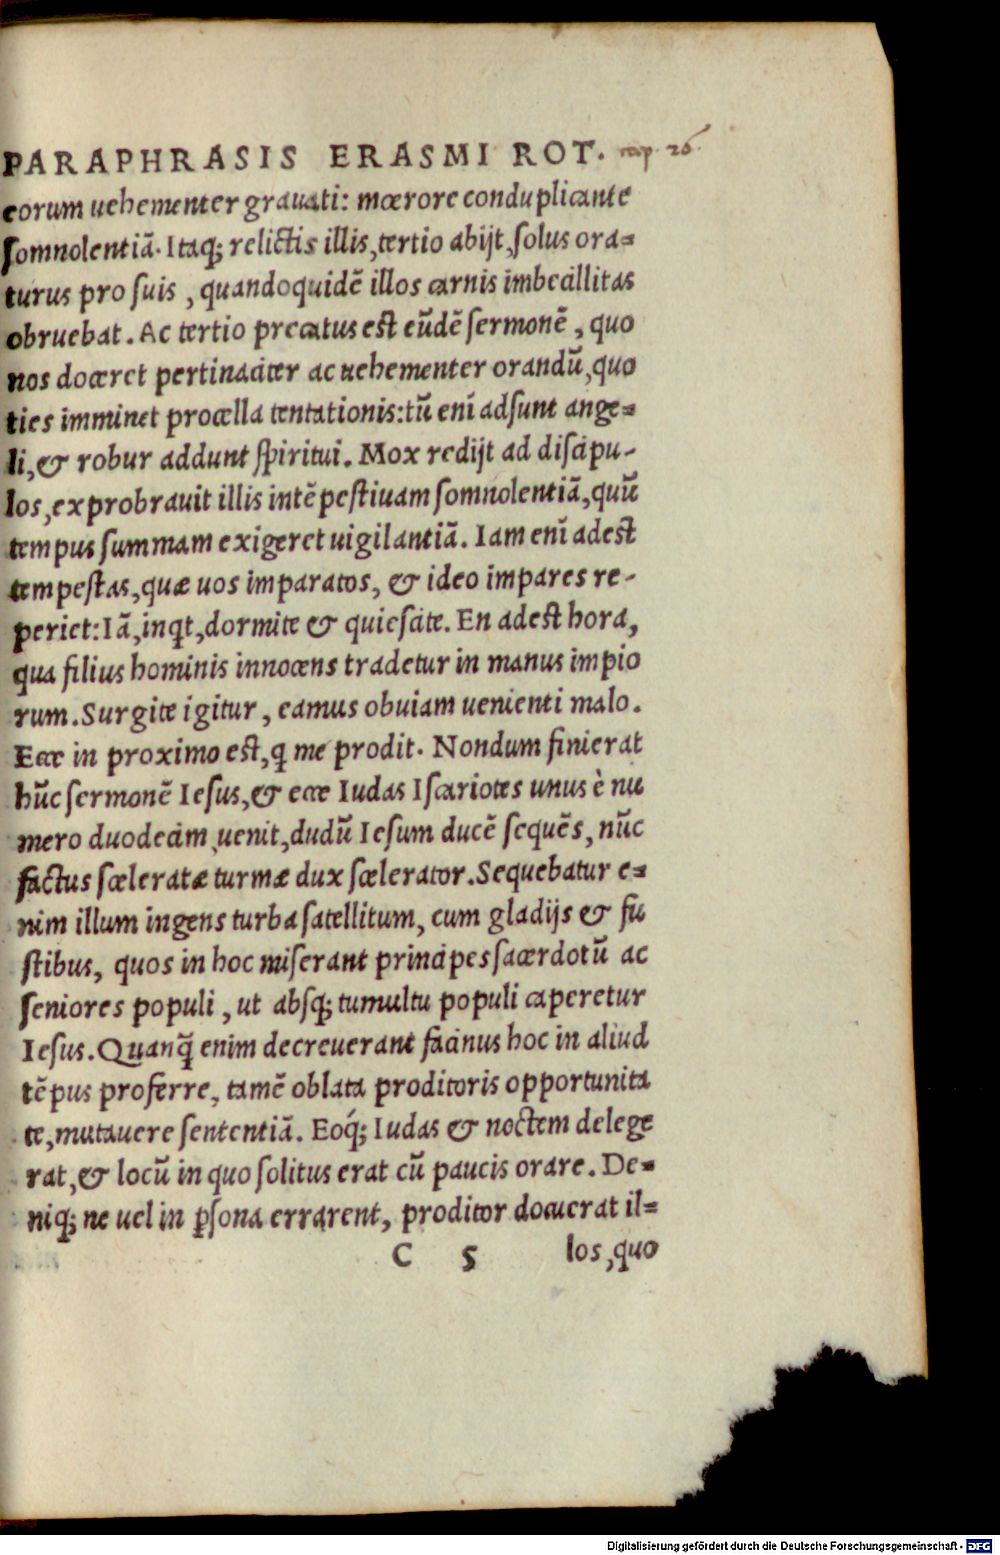 PARAPHRASIS ERASMI ROT. cap. 26.
eorum uehementer grauati: mœrore conduplicante
somnolentiã. Itaq; relictis illis, tertio abijt, solus ora=
turus pro suis, quandoquidẽ illos carnis imbecillitas
obruebat. Ac tertio precatus est eũdẽ sermonẽ, quo
nos doceret pertinaciter ac uehementer orandũ, quo
ties imminet procella tentationis: tũ enĩ adsunt ange=
li, & robur addunt spiritui. Mox redijt ad discipu-
los, exprobrauit illis intẽpestiuam somnolentiã, quũ
tempus summam exigeret uigilantiã. Iam enĩ adest
tempestas, quæ uos imparatos, & ideo impares re-
periet: Iã, inqt, dormite & quiescite. En adest hora,
qua filius hominis innocens tradetur in manus impio
rum. Surgite igitur, eamus obuiam uenienti malo.
Ecce in proximo est, q me prodit. Nondum finierat
hũc sermonẽ Iesus, & ecce Iudas Iscariotes unus è nu
mero duodecim uenit, dudũ Iesum ducẽ sequẽs, nũc
factus sceleratæ turmæ dux scelerator. Sequebatur e=
nim illum ingens turba satellitum, cum gladijs & fu
stibus, quos in hoc miserant principes sacerdotũ ac
seniores populi, ut absq; tumultu populi caperetur
Iesus. Quanq̃ enim decreuerant facinus hoc in aliud
tẽpus proferre, tamẽ oblata proditoris opportunita
te, mutauere sententiã. Eoq́; Iudas & noctem delege
rat, & locũ in quo solitus erat cũ paucis orare. De=
niq; ne uel in ꝑsona errarent, proditor docuerat il=
C 5 los, quo
Digitalisierung gefördert durch die Deutsche Forschungsgemeinschaft - DFG